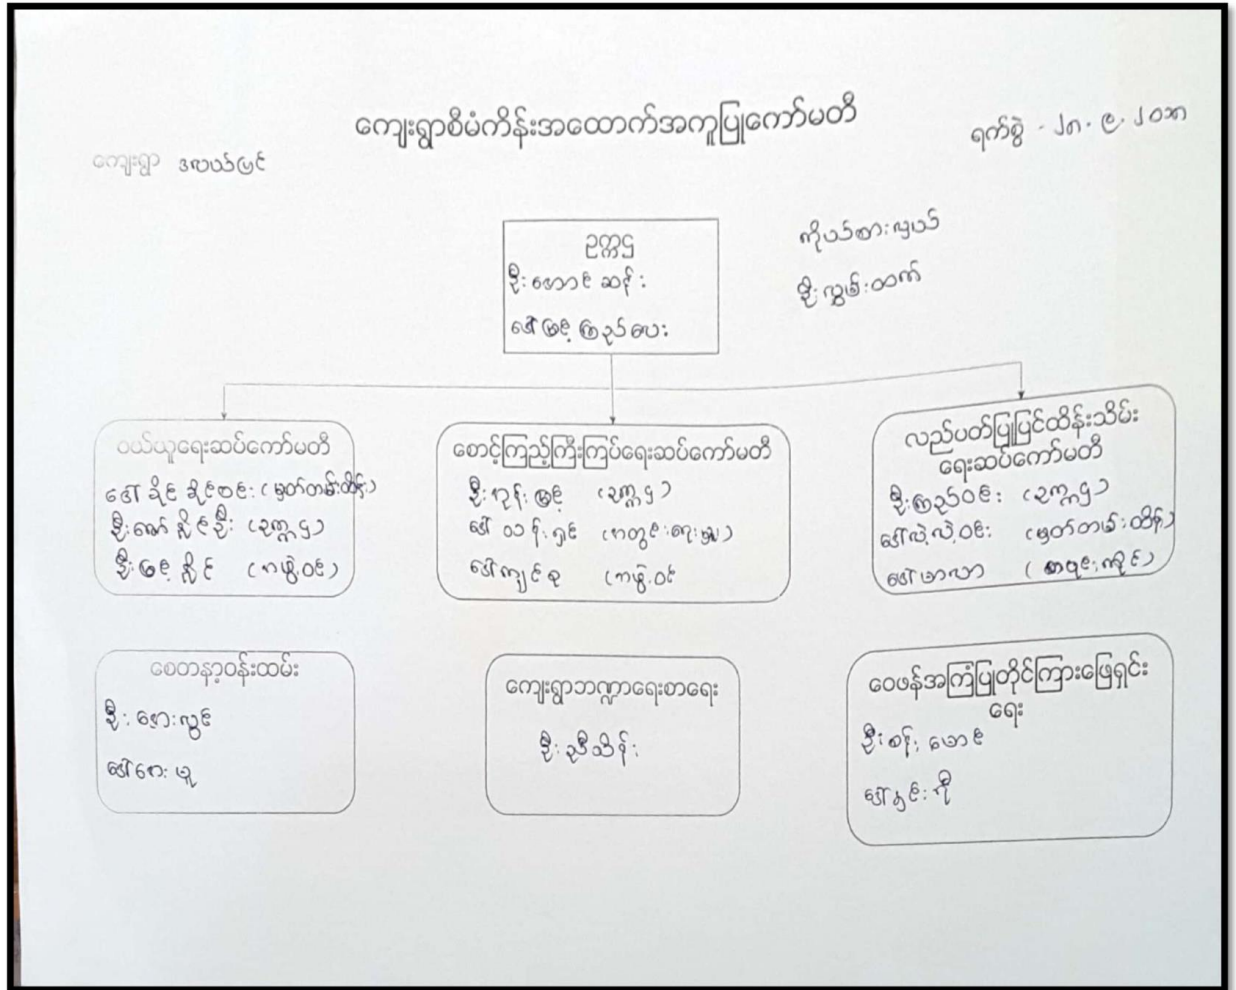 ကျေးရွာစီမံကိန်းအထောက်အကူပြုကော်မတီ
ရက်စွဲ - ၂၈.၉.၂၀၁၈
ကျေးရွာ ဒလယ်မြင်
ဥက္ကဌ
ဦးအောင်ဆန်း
ဒေါ်မြင့်ကြည်ဝေး
ကိုယ်စားလှယ်
ဦးလွှမ်းထက်
ဝယ်ယူရေးဆပ်ကော်မတီ
ဒေါ်ခိုင်ခိုင်ဝင်း (မှတ်တမ်းထိန်း)
ဦးဇော်နိုင်ဦး (ဥက္ကဌ)
ဦးမြင့်နိုင် (ကဖွဲ့ဝင်)
စောင့်ကြည့်ကြီးကြပ်ရေးဆပ်ကော်မတီ
ဦးထွန်းမြင့် (ဥက္ကဌ)
ဒေါ်သန်းရှင်
ဒေါ်ကျင်စု (ကဖွဲ့ဝင်
လည်ပတ်ပြုပြင်ထိန်းသိမ်း
ရေးဆပ်ကော်မတီ
ဦးကြည်ဝင်း (ဥက္ကဌ)
ဒေါ်လဲ့လဲ့ဝင်း (မှတ်တမ်းထိန်း)
ဒေါ်မာလာ (စာရင်းကိုင်)
စေတနာ့ဝန်းထမ်း
ဦးဇော်လွင်
ဒေါ်ဌေးယူ
ကျေးရွာဘဏ္ဍာရေးစာရေး
ဦးညီသိန်း
ဝေဖန်အကြံပြုတိုင်ကြားဖြေရှင်း
ရေး
ဦးစန်းမောင်
ဒေါ်နှင်းကို